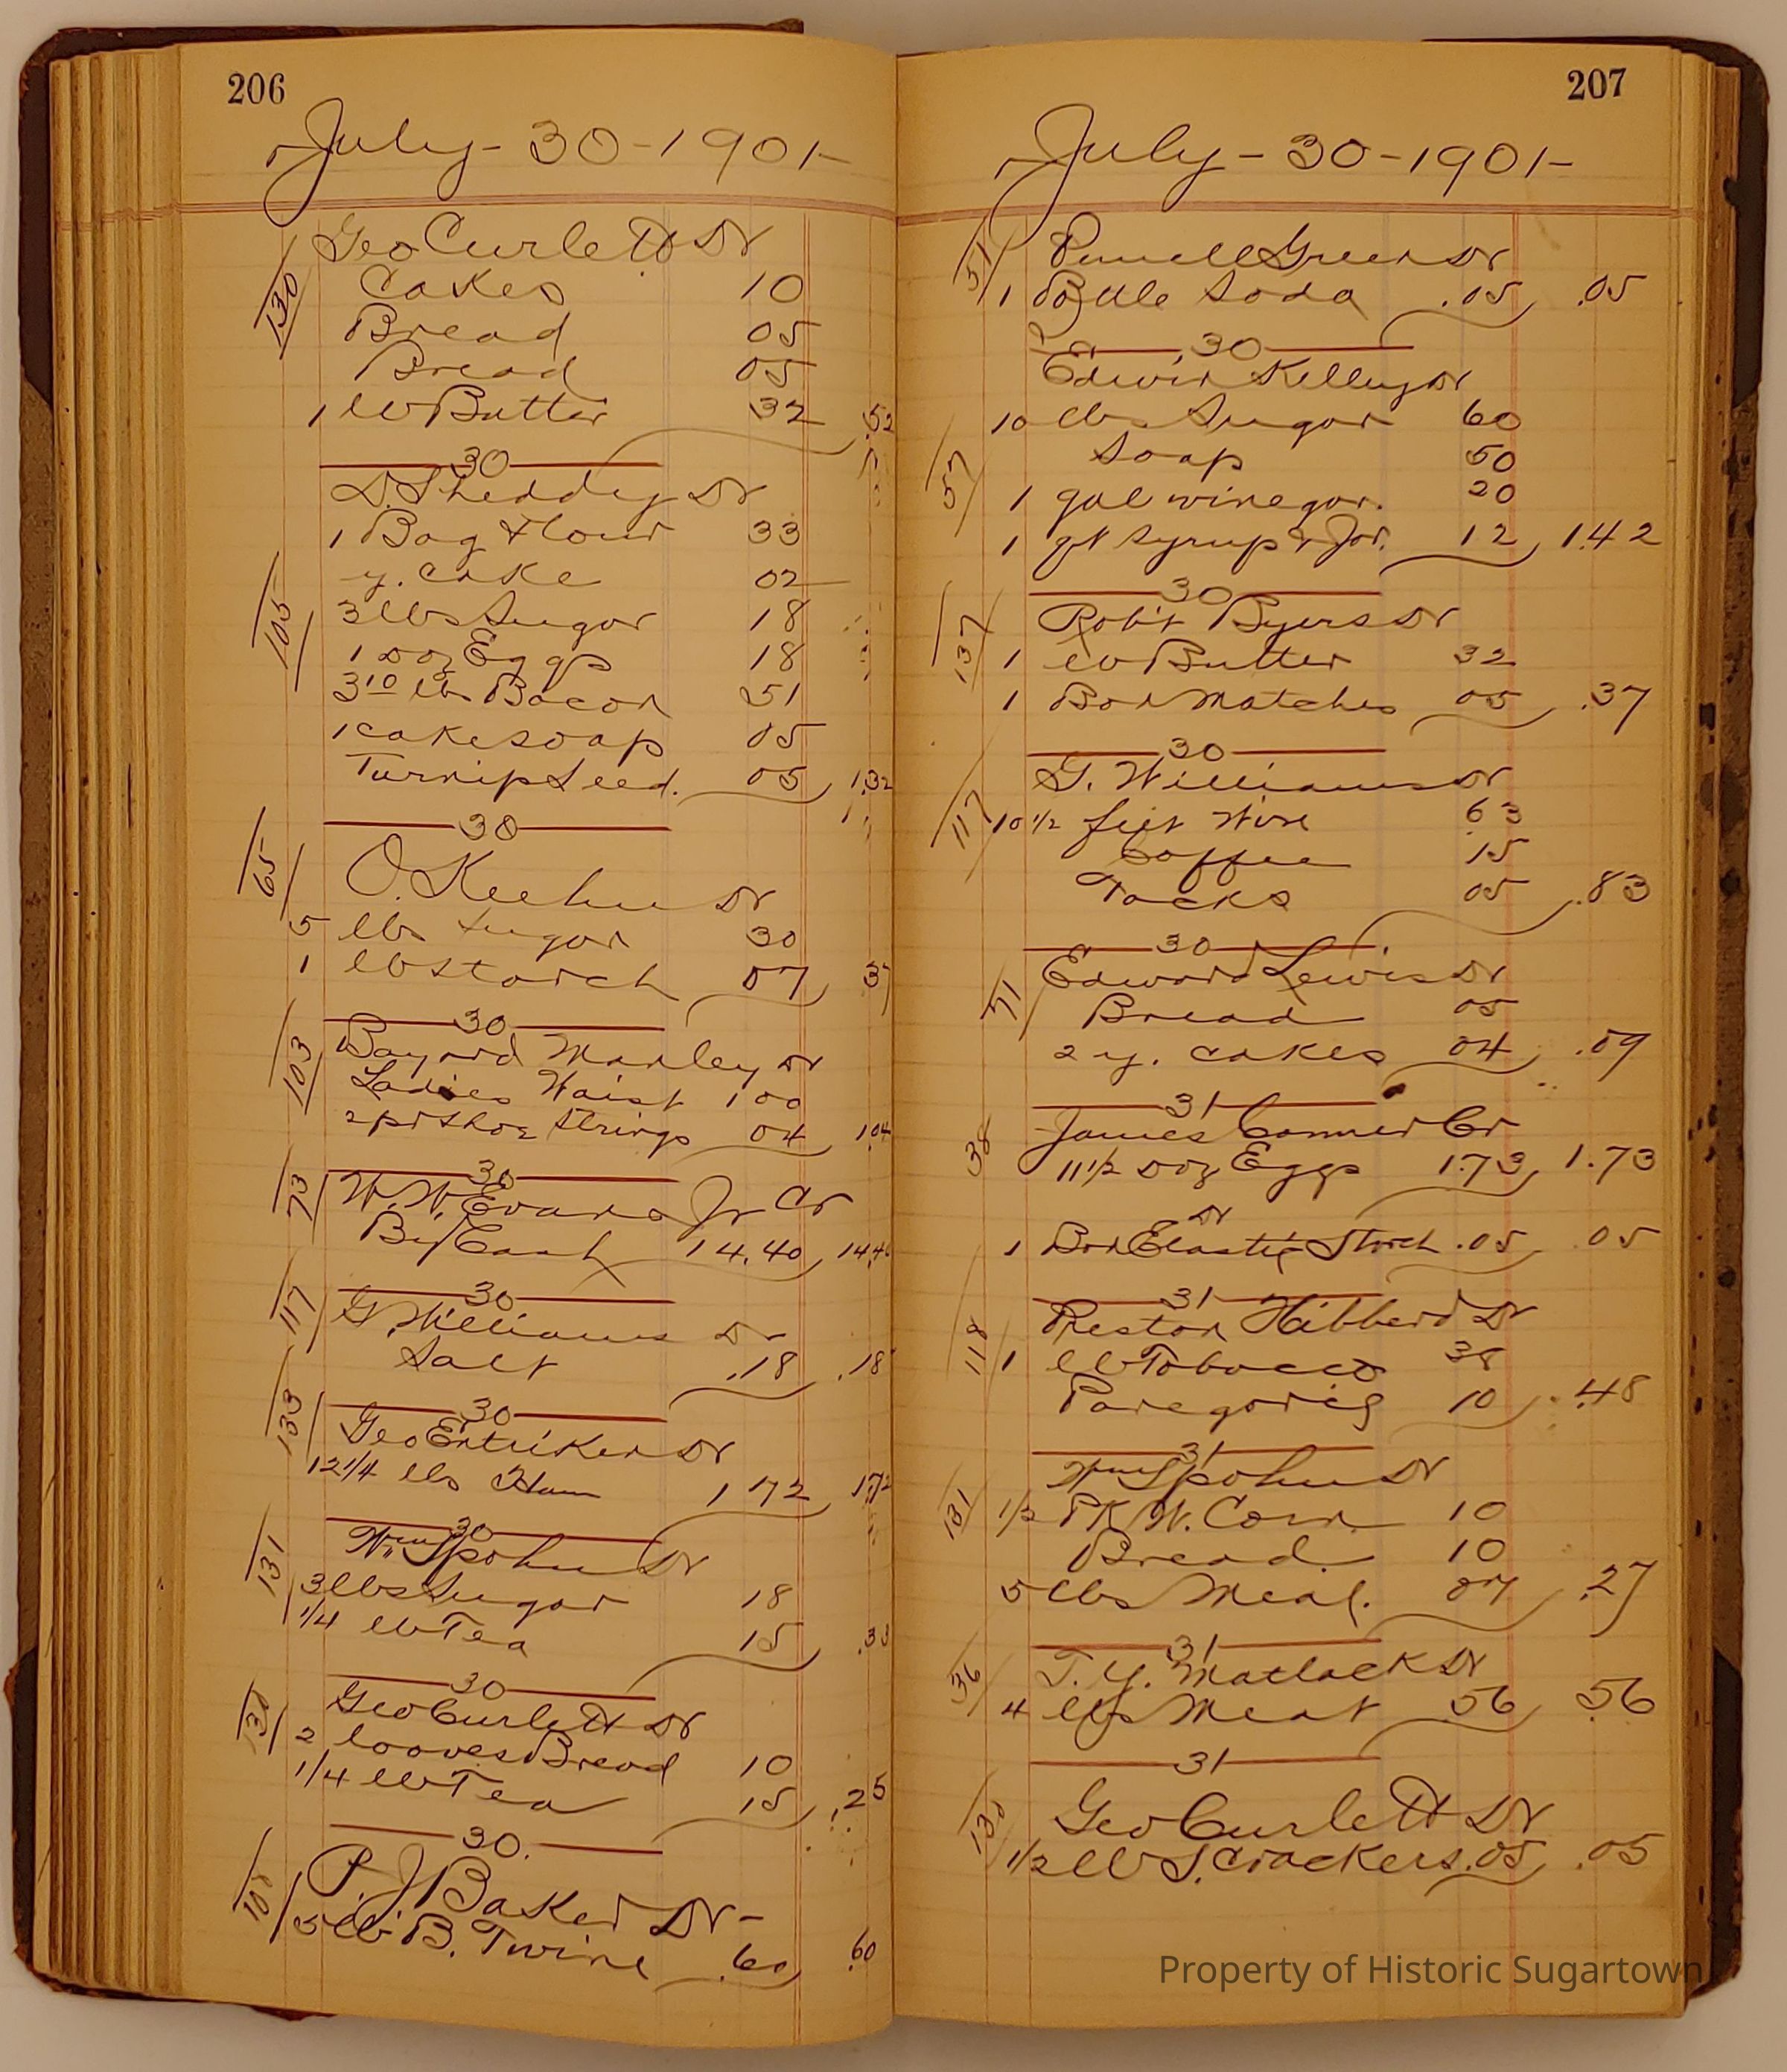 206
July - 30 - 1901 -
130 Geo Curlett Dr
Cakes 10
Bread 05
Bread 05
1 lb Butter 32 .52
30
D. Sheddy Dr
1 Bag Flour 33
y. cake 02
105 3 lbs Sugar 18
1 Doz Eggs 18
3 10 lbs Bacon 51
1 cake soap 05
Turnip Seed. 05 1.32
30
65 O. Keehn Dr
5 lbs Sugar 30
1 lb Starch 07 37
30
103 Bayard Manley Dr
Ladies Waist 1 00
2 pr Shoe Strings 04 1.04
30
73 W. W. Evans Jr Cr
By Cash 14.40 14.40
30
117 G. Williams Dr
Salt .18 .18
30
133 Geo Entriken Dr
12 1/4 lbs Ham 1 72 1.72
30
131 Wm Spohn Dr
3 lbs Sugar 18
1/4 lb Tea 15 .33
30
130 Geo Curlett Dr
2 loaves Bread 10
1/4 lb Tea 15 .25
30.
P. J. Baker Dr -
5 lb B. Twine .60 .60
207
July - 30 - 1901 -
51 Green Dr
1 Bottle Soda .05 .05
30
Edwin Kelley Dr
10 lbs Sugar 60
57 Soap 50
1 gal vinegar. 20
1 qt Syrup & Jar. 12 1.42
30
137 Rob't Byers Dr
1 lb Butter 32
1 Box Matches 05 .37
30
G. Williams Dr
117 10 1/2 feet Wire 63
Coffee 15
Tacks 05 .83
30
71 Edward Lewis Dr
Bread 05
2 y. cakes 04 .09
31
38 James Conner Cr
11 1/2 Doz Eggs 1.73 1.73
Dr
1 Box Elastic Starch .05 05
31
118 Preston Hibberd Dr
1 lb Tobacco 38
Paregoric 10 .48
31
Wm Spohn Dr
131 1/2 PK W. Corn 10
Bread 10
5 lbs Meal. 07 .27
31
36 T. Y. Matlack Dr
4 lbs Meat 56 .56
31
130 Geo Curlett Dr
1/2 lb S. Crackers .05 .05
Property of Historic Sugartown